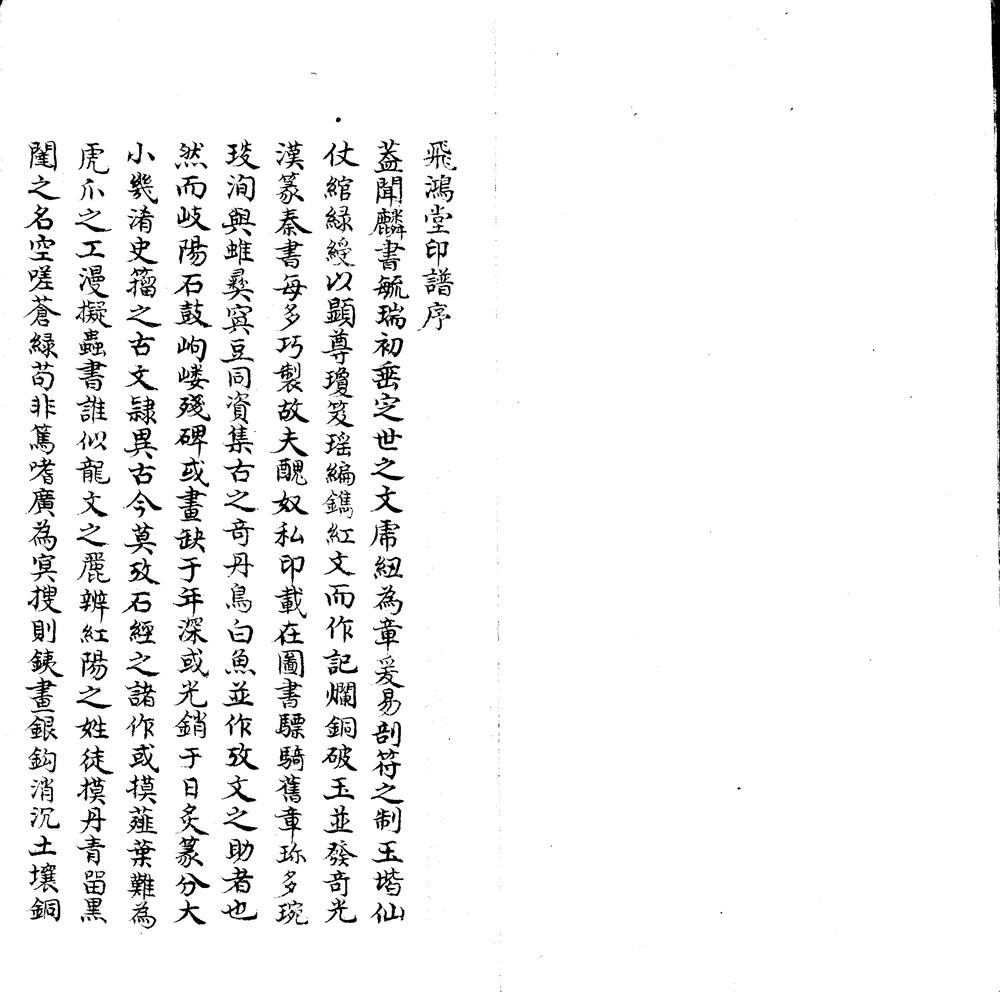 飛鴻堂印譜序
葢聞麟書毓瑞初垂定世之文虎紐為章爰易剖符之制玉堦仙
仗綰緑綬以顕尊瓊笈瑶編鐫紅文而作記爛銅破玉並發竒光
漢篆秦書每多巧製故夫醜奴私印載在圖書驃騎舊章珎多琬
琰洵與蜼彛窴豆同資集古之竒丹鳥白魚並作攷文之助者也
然而岐陽石鼓岣嶁殘碑或畫缺于年深或光銷于日炙篆分大
小幾淆史籀之古文隷異古今莫攷石經之諸作或摸薤葉難為
虎爪之工漫擬蟲書誰似龍文之麗辨紅陽之姓徒摸丹青畱黑
闥之名空嗟蒼緑苟非篤嗜廣為冥搜則銕畫銀鈎消沉土壤銅